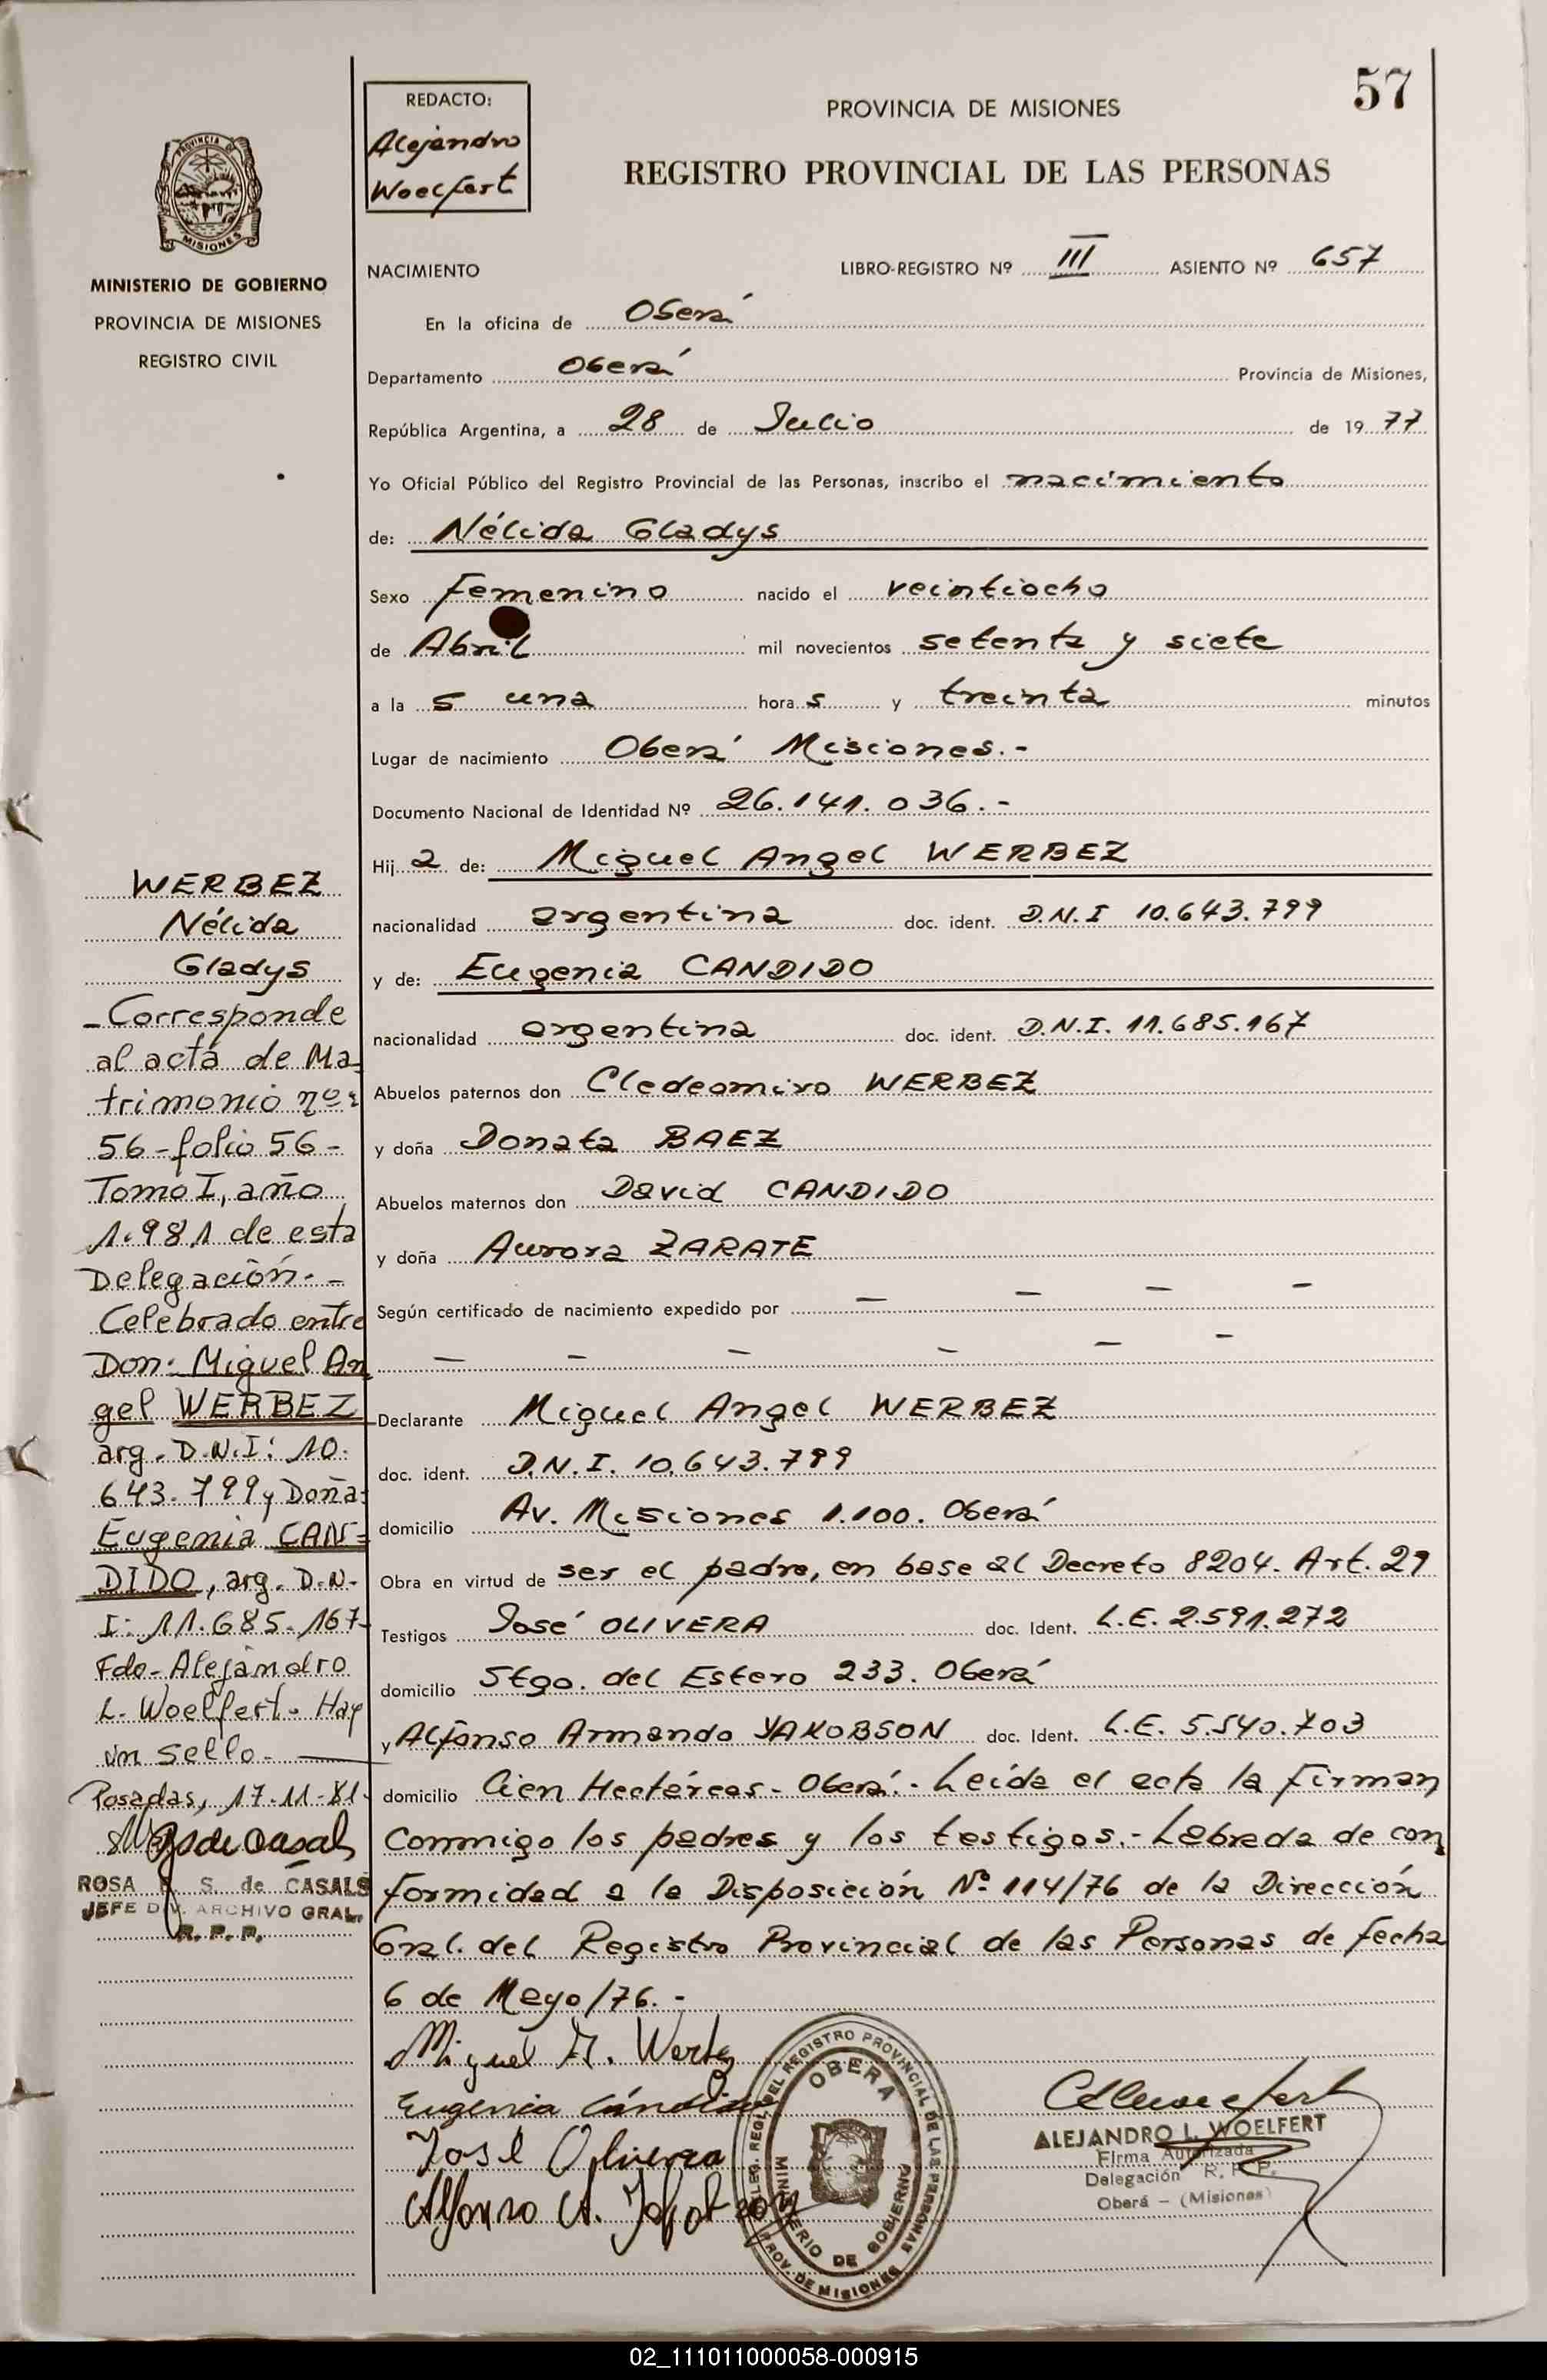 57
REDACTO:
Alejandro
Woelfert
PROVINCIA DE MISIONES
REGISTRO PROVINCIAL DE LAS PERSONAS
PROVINCIA DE
MISIONES
MINISTERIO DE GOBIERNO
PROVINCIA DE MISIONES
REGISTRO CIVIL
NACIMIENTO LIBRO-REGISTRO Nº III ASIENTO Nº 657
En la oficina de Oberá
Departamento Oberá Provincia de Misiones,
República Argentina, a 28 de Julio de 1977
Yo Oficial Público del Registro Provincial de las Personas, inscribo el nacimiento
de: Nélida Gladys
Sexo Femenino nacido el veintiocho
de Abril mil novecientos setenta y siete
a la s una hora s y treinta minutos
Lugar de nacimiento Oberá Misiones.-
Documento Nacional de Identidad Nº 26.141.036.-
Hij a de: Miguel Angel WERBEZ
nacionalidad argentina doc. ident. D.N.I 10.643.799
y de: Eugenia CANDIDO
nacionalidad argentina doc. ident. D.N.I. 11.685.167
Abuelos paternos don Cledeomiro WERBEZ
y doña Donata BAEZ
Abuelos maternos don David CANDIDO
y doña Aurora ZARATE
Según certificado de nacimiento expedido por — — — —
— — — — — —
Declarante Miguel Angel WERBEZ
doc. ident. D.N.I. 10.643.799
domicilio Av. Misiones 1.100. Oberá
Obra en virtud de ser el padre, en base al Decreto 8204. Art. 29
Testigos José OLIVERA doc. Ident. L.E. 2.591.272
domicilio Stgo. del Estero 233. Oberá
y Alfonso Armando YAKOBSON doc. Ident. L.E. 5.540.703
domicilio Cien Hectáreas - Oberá.- Leída el acta la firman
conmigo los padres y los testigos.- Labrada de con
formidad a la Disposición Nº 114/76 de la Dirección
Gral. del Registro Provincial de las Personas de fecha
6 de Mayo/76.-
Miguel A. Werbez
Eugenia Cándido
José Olivera
Alfonso A. Jakobson
WERBEZ
Nélida
Gladys
- Corresponde
al acta de Ma-
trimonio nº:
56 - folio 56 -
Tomo I, año
1.981 de esta
Delegación.-
Celebrado entre
Don: Miguel An
gel WERBEZ
arg. D.N.I: 10.
643.799 y Doña:
Eugenia CAN=
DIDO, arg. D.N.
I: 11.685.167-
Fdo- Alejandro
L. Woelfert. Hay
un sello. —
Posadas, 17-11-81.
ROSA S. de CASALS
JEFE DIV. ARCHIVO GRAL.
R. P. P.
DELEG. REGL. DEL REGISTRO PROVINCIAL DE LAS PERSONAS
OBERA
MINISTERIO DE GOBIERNO
PROV. DE MISIONES
ALEJANDRO L. WOELFERT
Firma Autorizada
Delegación R. P. P.
Oberá - (Misiones)
02_111011000058-000915